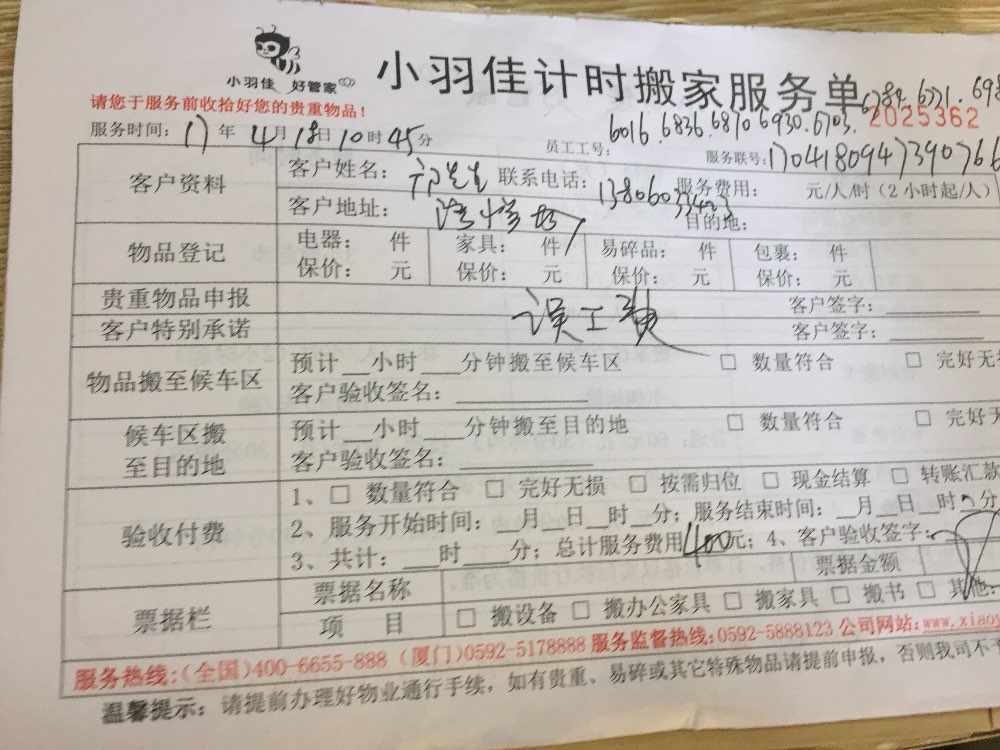 小羽佳 好管家
小羽佳计时搬家服务单
请您于服务前收拾好您的贵重物品!
6016.6836.6870 6930.6703.
2025362
服务时间:17年4月18日10时45分
员工工号:
服务联号:170418094739076
客户资料
客户姓名: 先生 联系电话: 服务费用: 元/人/时(2小时起/人)
客户地址: 目的地:
物品登记
电器: 件 家具: 件 易碎品: 件 包裹: 件
保价: 元 保价: 元 保价: 元 保价: 元
贵重物品申报 客户签字:
误工费
客户特别承诺 客户签字:
物品搬至候车区
预计__小时___分钟搬至候车区 □ 数量符合 □ 完好无
客户验收签名:
候车区搬至目的地
预计__小时___分钟搬至目的地 □ 数量符合 □ 完好
客户验收签名:
验收付费
1、□ 数量符合 □ 完好无损 □ 按需归位 □ 现金结算 □ 转账汇款
2、服务开始时间:__月__日__时__分;服务结束时间:__月__日__时__分
3、共计:___时___分;总计服务费用400元;4、客户验收签字:
票据栏
票据名称 票据金额
项 目 □ 搬设备 □ 搬办公家具 □ 搬家具 □ 搬书 □ 其他:
服务热线:(全国)400-6655-888 (厦门)0592-5178888 服务监督热线:0592-5888123 公司网站:www.xiao
温馨提示:请提前办理好物业通行手续,如有贵重、易碎或其它特殊物品请提前申报,否则我司不